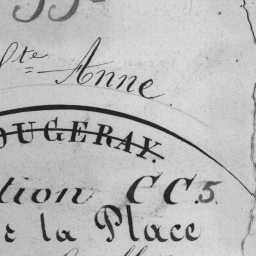 Ste Anne
OUGERAY.
tion CC5.
e la Place